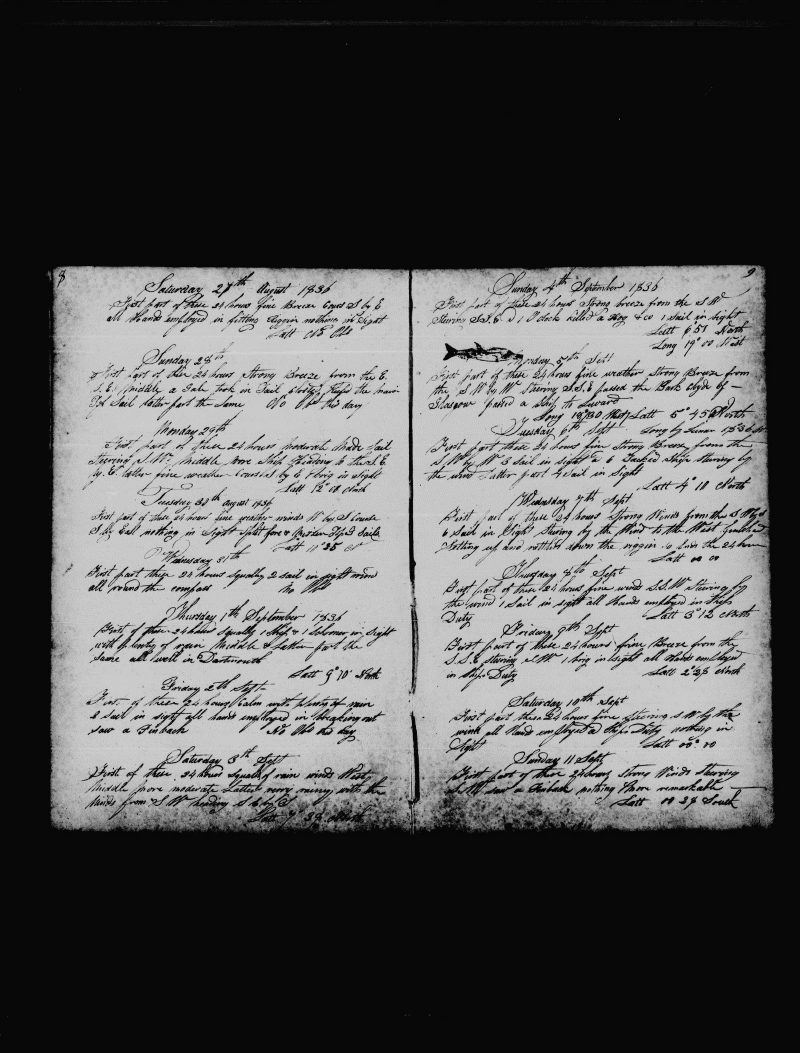 8
Saturday 27th August 1836
First part of these 24 hours fine Breeze S by E
all Hands employed in fitting Riggin nothing in Sight
Latt No Obs
Sunday 28th
First part of these 24 hours Strong Breeze from the E.
S.E. Middle a Gale took in Sail the main
Sail Latter part the Same No Obs this day
Monday 29th
First part of these 24 hours moderate Made Sail
Steering S.W. Middle Ship Heading to the S.E.
by E. latter fine weather Course S by E 1 brig in Sight
Latt 12° North
Tuesday 30th August 1836
First part of these 24 hours fine weather winds W by S Course
S by E nothing in Sight Split fore & Mizden Sails
Latt 11° 35
Wednesday 31th
First part these 24 hours Squally 2 sail in sight wind
all round the compass No Obs
Thursday 1th September 1836
First of these 24 hours Squally 1 Ship & 1 in Sight
with plenty of rain Middle & Latter part the
same all well in Dartmouth
Latt 9° 10' North
Friday 2th Sept
First of these 24 hours Calm with plenty of rain
2 sail in sight all hands employed in breaking out
saw a Finback No Obs this day
Saturday 3th Sept
First of these 24 hours Squally rain winds West
Middle more moderate Latter very rainy with the
winds from S.W. heading S.E. by S
Latt 7° 38 North
9
Sunday 4th September 1836
First part of these 24 hours Strong breeze from the S.W.
Steering S.S.E. at 1 Oclock killed a Hog & co 1 Sail in Sight
Latt 6° 57 North
Long 19° 00 West
Monday 5th Sept
First part of these 24 hours fine weather Strong Breeze from
the S.W. by W. Steering S.S.E. passed the Bark Clyde of
Glasgow passed a Ship to Leward
Long 19° 30 West Latt 5° 45 North
Tuesday 6th Sept Long by Lunar
First part these 24 hours fine Strong Breeze from the
S.W. by W 3 Sail in Sight at 6 Tacked Ship Steering by
the wind Latter part 4 Sail in Sight
Latt 4° 18 North
Wednesday 7th Sept
First part of these 24 hours Strong Winds from the
6 Sail in Sight Steering by the Wind to the West
Nothing up and rattled down the riggin so Ends the 24 hours
Latt 00 00
Thursday 8th Sept
First part of these 24 hours fine winds S.S.W. Steering by
the wind 1 Sail in sight all Hands employed in Ships
Duty Latt 3° 12 North
Friday 9th Sept
First part of these 24 hours fine Breeze from the
S.S.E. Steering S.W. 1 brig in Sight all Hands employed
in Ships Duty Latt 2° 28 North
Saturday 10th Sept
First part these 24 hours fine Steering S.W. by the
wind all Hand employed Ships Duty nothing in
Sight Latt 00° 00
Sunday 11 Sept
First part of these 24 hours Strong Winds Steering
S.W. saw a Finback nothing More remarkable
Latt 00 39 South